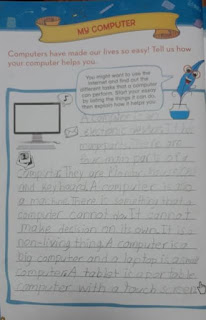 MY COMPUTER
Computers have made our lives so easy! Tell us how
your computer helps you.
You might want to use the
internet and find out the
different tasks that a computer
can perform. Start your essay
by listing the things it can do,
then explain how it helps you.
A computer is an
electronic device. It has
many parts. There are
four main parts of a
computer. They are
and keyboard. A computer is also
a machine. There is something that a
computer cannot do. It cannot
make decision on its own. It is a
non-living thing. A computer is a
big computer and a laptop is a small
computer. A tablet is a portable
computer with a touch screen